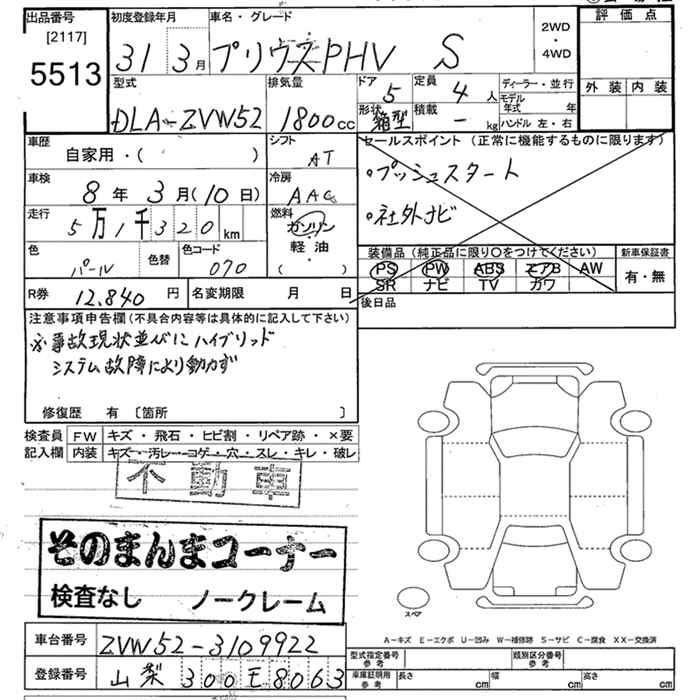 出品番号 初度登録年月 車名・グレード 2WD・4WD 評価点
[2117]
5513
31 3月 プリウスPHV S
型式 排気量 ドア 定員 ディーラー・並行 外装 内装
5 4人 モデル年式 年
DLA-ZVW52 1800cc 形状 箱型 積載 - kg ハンドル 左・右
車歴 シフト セールスポイント (正常に機能するものに限ります)
自家用・( ) AT
車検 冷房 ・プッシュスタート
8年 3月(10日) AAC
走行 燃料 ・社外ナビ
5万1千320km ガソリン
色 色替 色コード 軽油 装備品 (純正品に限り○をつけてください) 新車保証書
パール 070 ( ・ ) PS PW ABS エアB AW 有・無
SR ナビ TV カワ
R券 12,840円 名変期限 月 日 後日品
注意事項申告欄(不具合内容等は具体的に記入して下さい)
※事故現状並びにハイブリッド
システム故障により動かず
修復歴 有 〔箇所 〕
検査員 FW キズ・飛石・ヒビ割・リペア跡・×要
記入欄 内装 キズ・汚レ・コゲ・穴・スレ・キレ・破レ
不動車
そのまんまコーナー
検査なし ノークレーム
スペア
A-キズ E-エクボ U-凹み W-補修跡 S-サビ C-腐食 XX-交換済
車台番号 ZVW52-3109922 型式指定番号 参考 類別区分番号 参考
登録番号 山梨 300モ8063 車庫証明用 参考 長さ cm 幅 cm 高さ cm